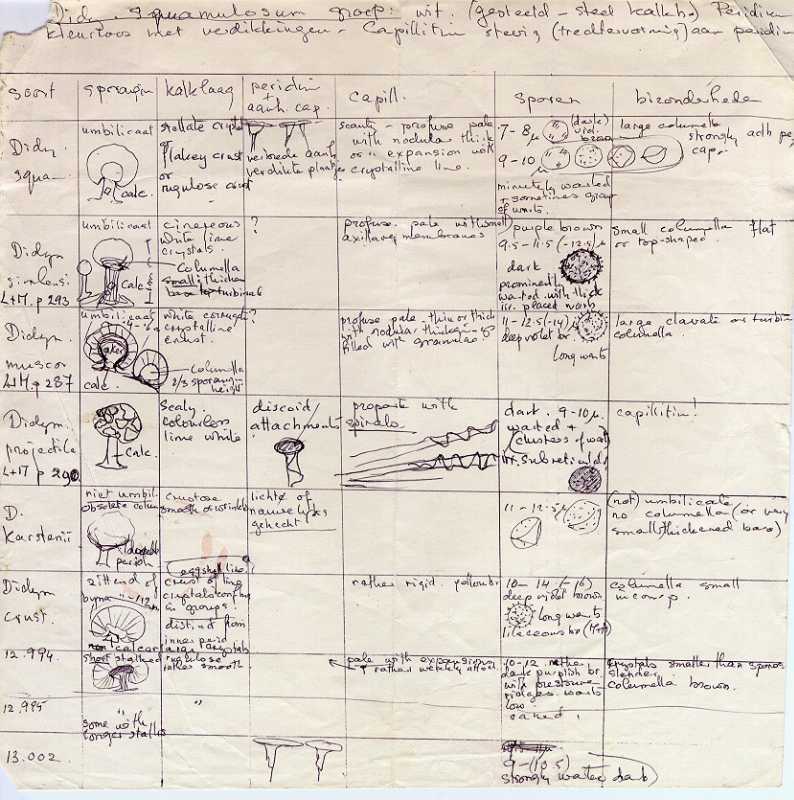 Didy. squamulosum groep: wit. (gesteeld - steel kalkh.) Peridium
kleurloos met verdikkingen - Capillitium stevig (trechtervormig) aan peridiu
soort
sporangia
kalklaag
peridium
+
aanh. cap.
capill.
sporen
bizonderhede
Didy.
squa.
umbilicaat
calc.
stellate cryst
or
flakey crust
or
rugulose crust
verbrede aanh
verdikte plaatjes
scanty - profuse pale
with nodular thick
or expansion with
crystalline lime.
7-8 μ
(dark)
viol.
9-10
minutely warted
+ sometimes group
of warts.
large columella
strongly adh pe
cap.
Didym
L+M. p 293
umbilicaat
calc
cinereous
white lime
crystals.
Columella
small thicker
base turbinate
?
profuse pale with small
axillary membranes
purple brown
9.5-11.5 (-12.5) μ
dark
prominently
warted with thick
irr. placed warts
small columella flat
or top-shaped.
Didym.
muscor
L+M. p 287
umbilicaat
calc.
white corrugate
crystalline
crust.
columella
2/3 sporangium
height
?
profuse pale - thin or thick
with nodular thickenings
filled with granules
11-12.5 (-14) μ
deep violet br.
long warts
large clavate or turbin
columella.
Didym.
projectile
L+M p 290
calc.
scaly.
colourless
lime white
discoid
attachments
with
spirals
dark. 9-10 μ.
warted +
clusters of wart
subreticulate
capillitium!
D.
Karstenii
niet umbil.
obsolete colum
double
perid
crustose
smooth or wrinkle
eggshell like
lichte of
nauwelijks
gehecht
11-12.5 μ
(not) umbilicate
no columella (or very
small thickened base)
Didym
crust.
zittend of
bijna
crust of lime
crystals
in groups.
distinct from
inner perid
rather rigid yellow br
10-14 (-16)
deep violet brown
long warts
lilaceous br
columella small
inconsp.
12.994
non calcareous
short stalked
large crystals
rugulose
rather smooth
pale with expansions
rather weakly attach.
10-12 rather
dark purplish br.
with pressure
ridges. warts
low
crystals smaller than spores
slender
columella brown.
12.995
some with
longer stalks
"
13.002
9-(10.5)
strongly warted dark